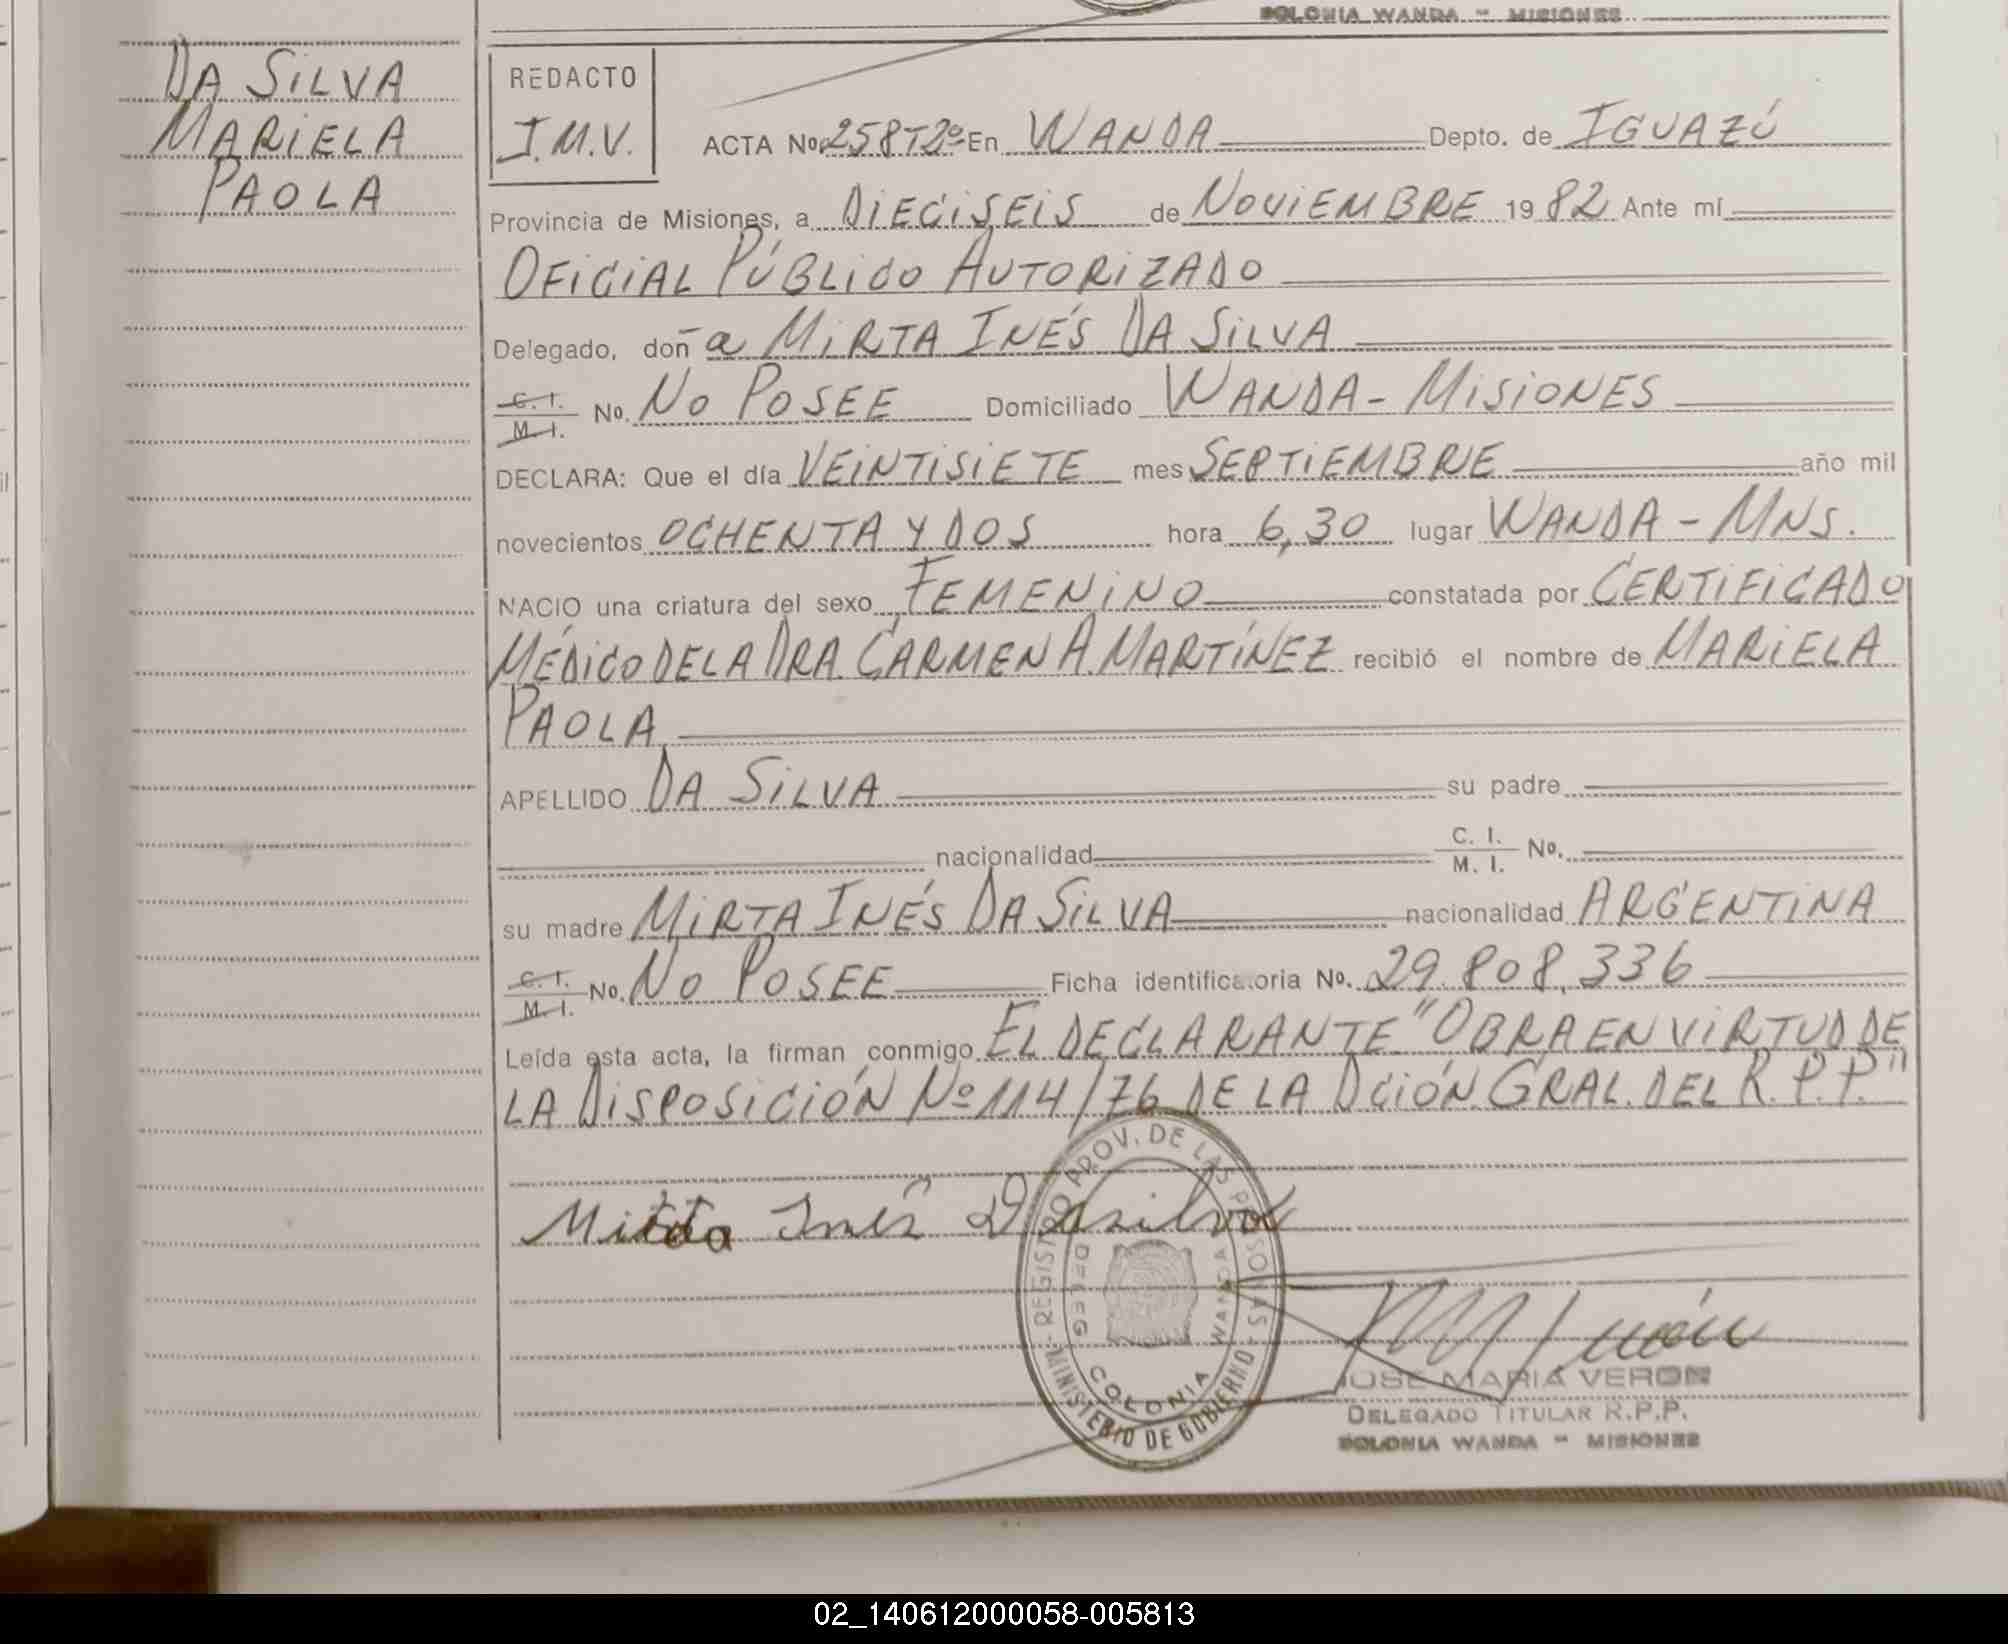 COLONIA WANDA - MISIONES
DA SILVA
MARIELA
PAOLA
REDACTO
J.M.V.
ACTA No. 258 T2º En WANDA Depto. de IGUAZÚ
Provincia de Misiones, a DIECISEIS de NOVIEMBRE 19 82 Ante mí
OFICIAL PÚBLICO AUTORIZADO
Delegado, doña MIRTA INÉS DA SILVA
C. I. / M. I. No. NO POSEE Domiciliado WANDA - MISIONES
DECLARA: Que el día VEINTISIETE mes SEPTIEMBRE año mil
novecientos OCHENTA Y DOS hora 6,30 lugar WANDA - MNS.
NACIO una criatura del sexo FEMENINO constatada por CERTIFICADO
MÉDICO DE LA DRA. CARMEN A. MARTÍNEZ recibió el nombre de MARIELA
PAOLA
APELLIDO DA SILVA su padre
nacionalidad C. I. / M. I. No.
su madre MIRTA INÉS DA SILVA nacionalidad ARGENTINA
C. I. / M. I. No. NO POSEE Ficha identificatoria No. 29.808.336
Leída esta acta, la firman conmigo EL DECLARANTE "OBRA EN VIRTUD DE
LA DISPOSICIÓN Nº 114/76 DE LA DCIÓN GRAL. DEL R.P.P."
Mirta Inés Dasilva
REGISTRO PROV. DE LAS PERSONAS
MINISTERIO DE GOBIERNO
DELEG COLONIA WANDA
JOSE MARIA VERON
DELEGADO TITULAR R.P.P.
COLONIA WANDA - MISIONES
02_140612000058-005813